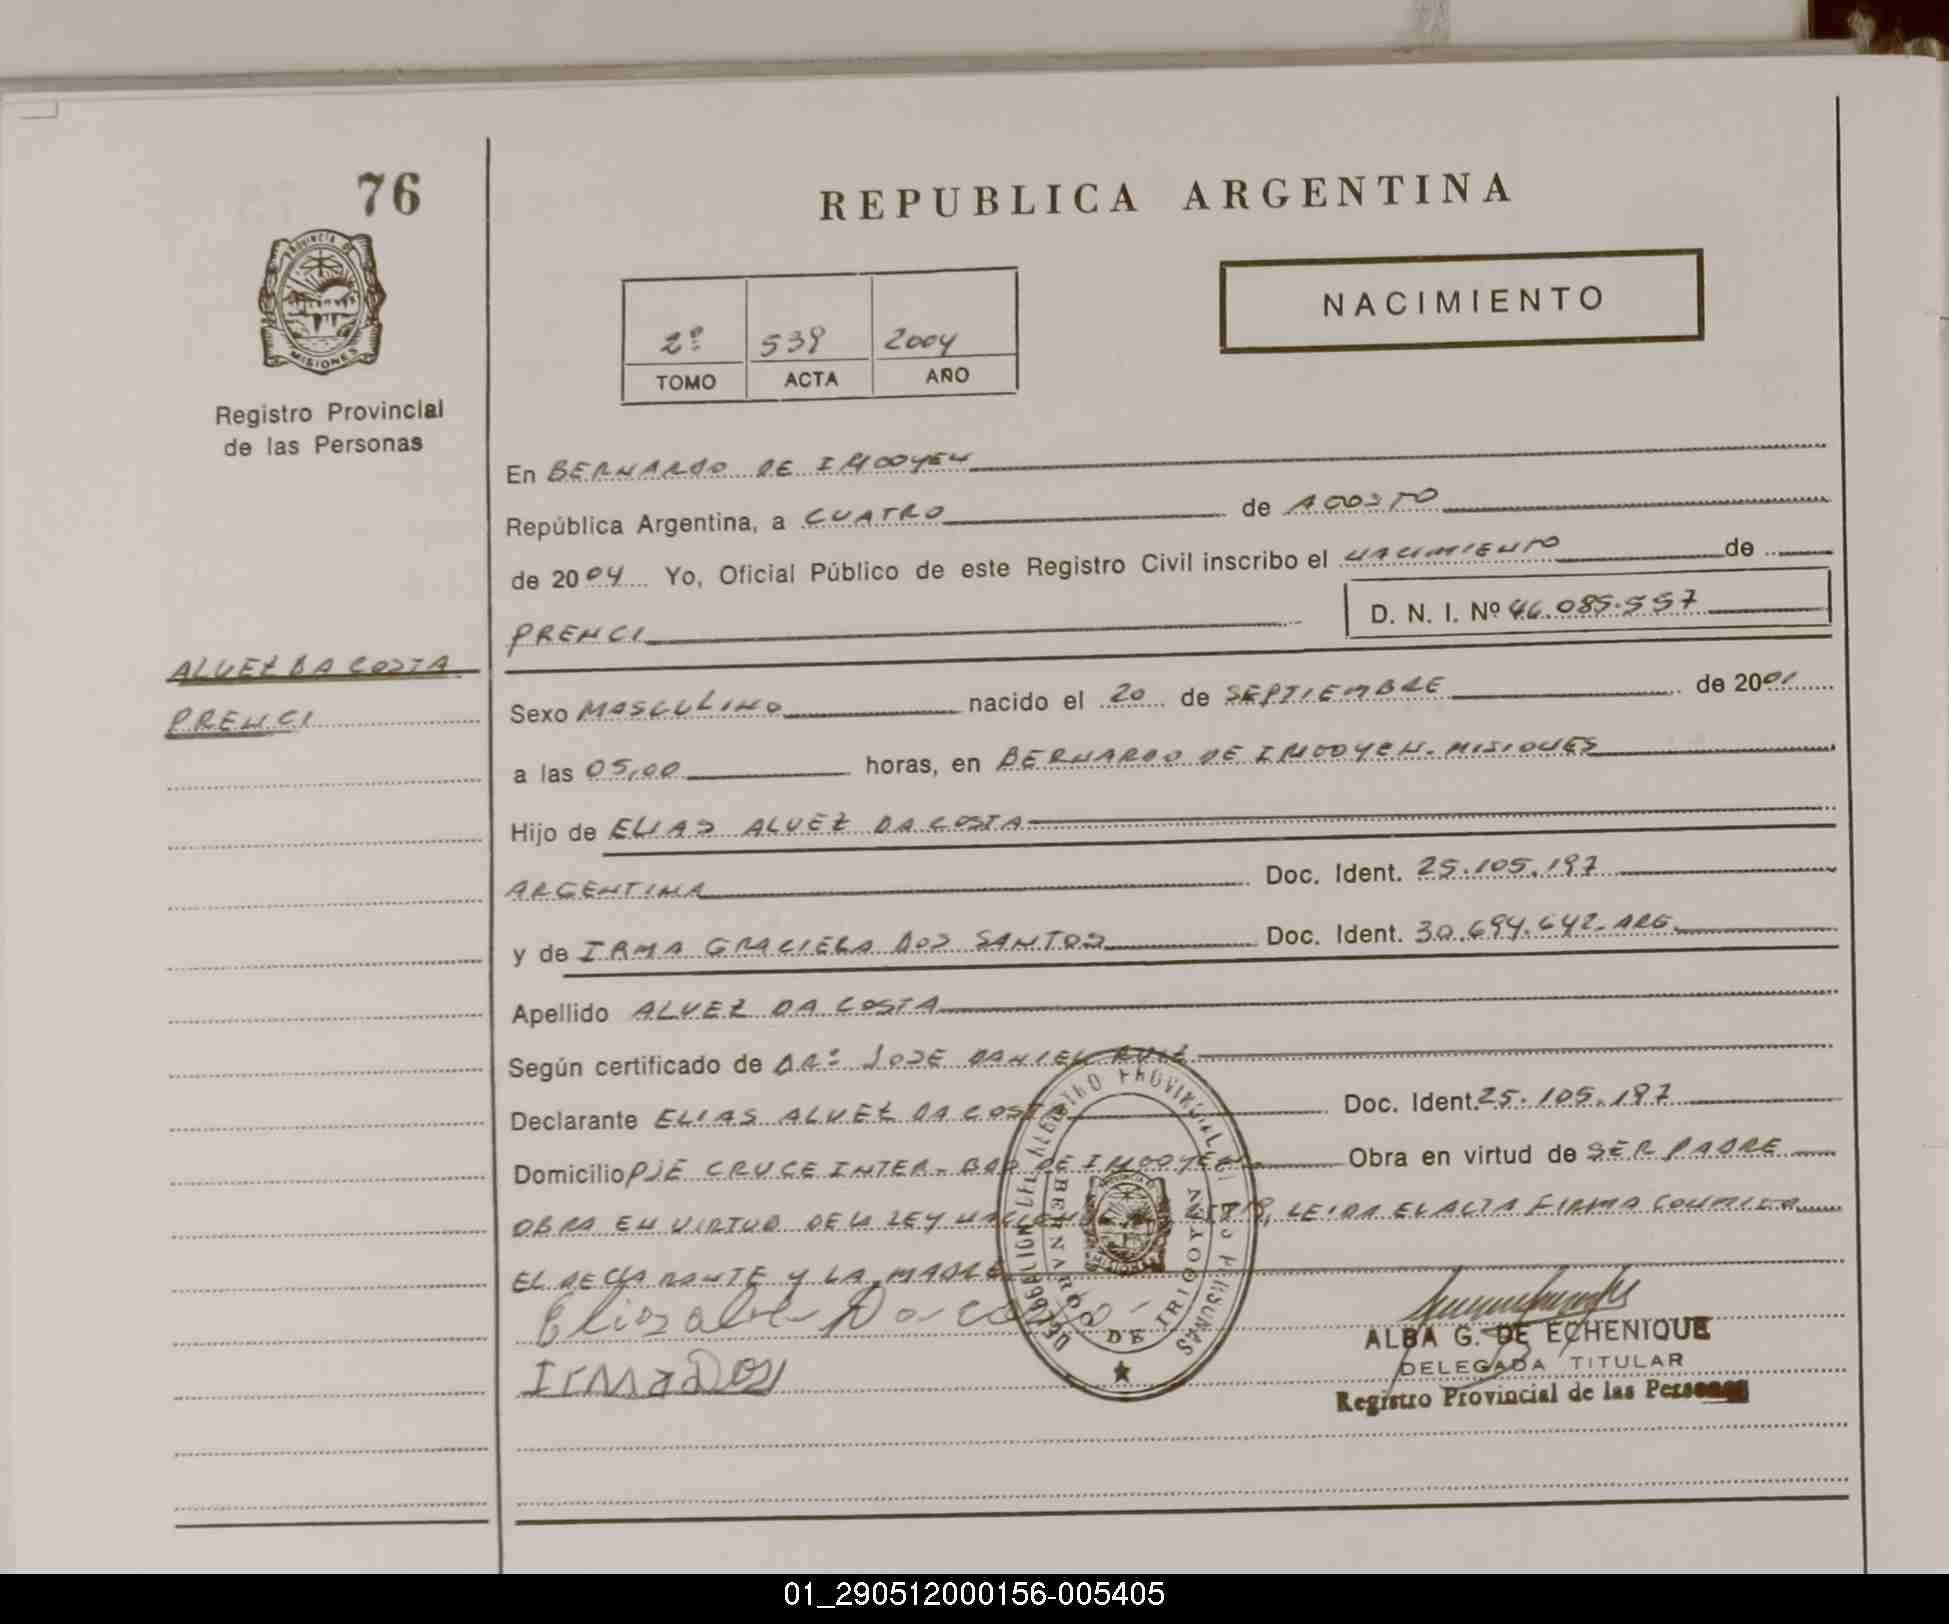 76
REPUBLICA ARGENTINA
PROVINCIA DE
MISIONES
NACIMIENTO
2º 539 2004
TOMO ACTA AÑO
Registro Provincial
de las Personas
En BERNARDO DE IRIGOYEN
República Argentina, a CUATRO de AGOSTO
de 2004 Yo, Oficial Público de este Registro Civil inscribo el NACIMIENTO de
PRENCI D. N. I. Nº 46.085.557
ALVEZ DA COSTA
PRENCI
Sexo MASCULINO nacido el 20 de SEPTIEMBRE de 2001
a las 05,00 horas, en BERNARDO DE IRIGOYEN. MISIONES
Hijo de ELIAS ALVEZ DA COSTA
ARGENTINA Doc. Ident. 25.105.197
y de IRMA GRACIELA DOS SANTOS Doc. Ident. 30.694.642- ARG.
Apellido ALVEZ DA COSTA
Según certificado de DR: JOSE DANIEL RUIZ
Declarante ELIAS ALVEZ DA COSTA Doc. Ident. 25.105.197
Domicilio PJE CRUCE INTER. BDO DE IRIGOYEN Obra en virtud de SER PADRE
OBRA EN VIRTUD DE LA LEY LEIDA EL ACTA FIRMA CONMIGO
EL DECLARANTE Y LA MADRE
DELEGACION DEL REGISTRO PROVINCIAL DE LAS PERSONAS
BERNARDO DE IRIGOYEN
Irma Dos
ALBA G. DE ECHENIQUE
DELEGADA TITULAR
Registro Provincial de las Personas
01_290512000156-005405